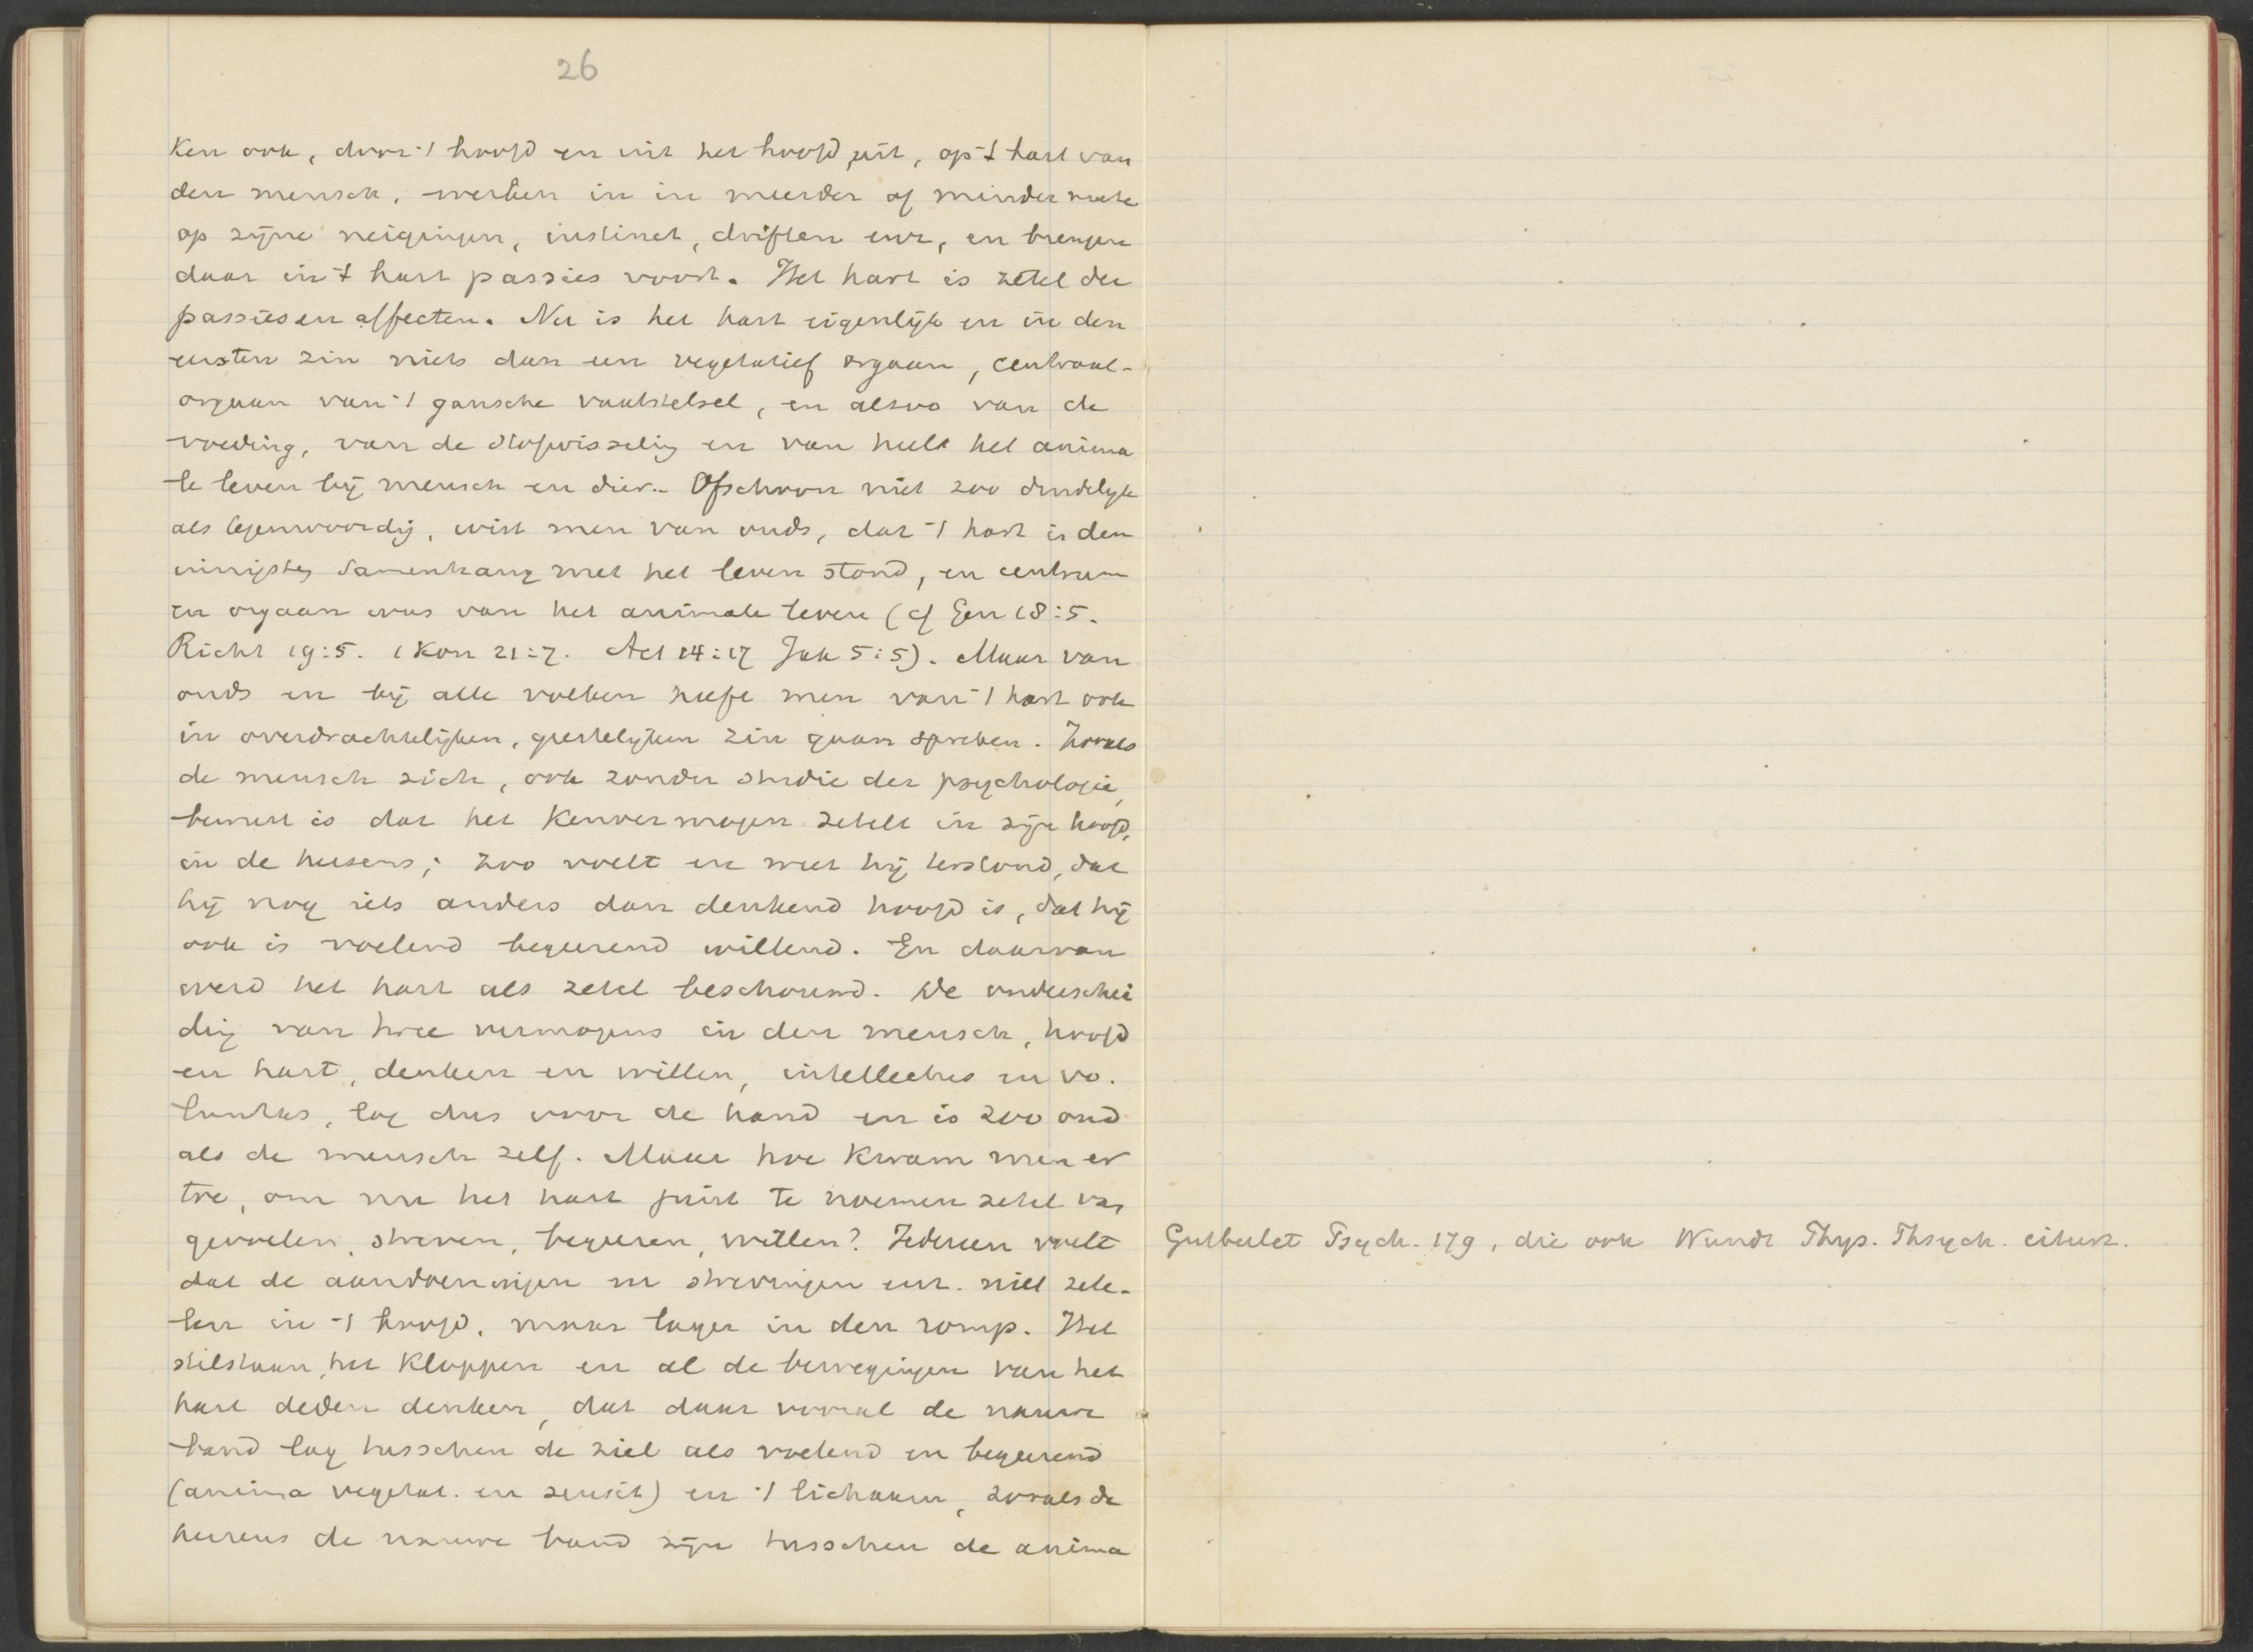 26
ken ook, door 't hoofd en uit het hoofd uit, op 't hart van
den mensch, werken in in meerder of minder mate
op zijne neigingen, instinct, driften enz, en brengen
daar in 't hart passies voort. Het hart is zetel der
passies en affecten. Nu is het hart eigenlijk en in den
eersten zin niets dan een vegetatief orgaan, centraal-
orgaan van 't gansche vaatstelsel, en alzoo van de
voeding, van de stofwisseling en van heel het anima
le leven bij mensch en dier. Ofschoon niet zoo duidelijk
als tegenwoordig, wist men van ouds, dat 't hart in den
innigsten samenhang met het leven stond, en centrum
en orgaan was van het animale leven (cf Gen 18:5.
Richt 19:5. 1 Kon 21:7. Act 14:17 Jak 5:5). Maar van
ouds en bij alle volken heeft men van 't hart ook
in overdrachtelijken, geestelijken zin gaan spreken. Zooals
de mensch zich, ook zonder studie der psychologie,
bewust is dat het kenvermogen zetelt in zijn hoofd,
in de hersens; zoo voelt en weet hij terstond, dat
hij nog iets anders dan denkend hoofd is, dat hij
ook is voelend begeerend willend. En daarvan
werd het hart als zetel beschouwd. De onderschei
ding van twee vermogens in den mensch, hoofd
en hart, denken en willen, intellectus en vo-
luntas, lag dus voor de hand en is zoo oud
als de mensch zelf. Maar hoe kwam men er
toe, om nu het hart juist te noemen zetel van
gevoelen, streven, begeeren, willen? Iedereen voelt
dat de aandoeningen en strevingen enz. niet zete-
len in 't hoofd, maar lager in den romp. Het
stilstaan, het kloppen en al de bewegingen van het
hart deden denken, dat daar vooral de nauwe
band lag tusschen de ziel als voelend en begeerend
(anima vegetat. en sensit) en 't lichaam, zooals de
hersens de nauwe band zijn tusschen de anima
Gutberlet Psych. 179, die ook Wundt Phys. Psych. citeert.